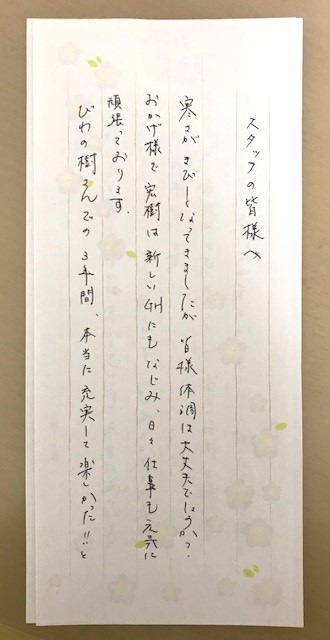 スタッフの皆様へ
寒さがきびしくなってきましたが 皆様体調は大丈夫でしょうか?
おかげ様で宏樹は新しいGHにもなじみ、日々仕事も元気に
頑張っております。
びわの樹さんでの3年間、本当に充実して楽しかった!!と